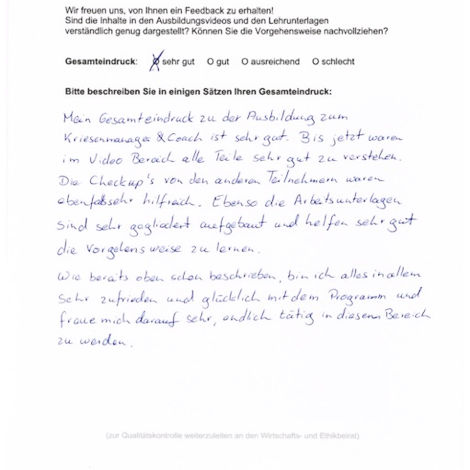 Wir freuen uns, von Ihnen ein Feedback zu erhalten!
Sind die Inhalte in den Ausbildungsvideos und den Lehrunterlagen
verständlich genug dargestellt? Können Sie die Vorgehensweise nachvollziehen?
Gesamteindruck: O sehr gut O gut O ausreichend O schlecht
Bitte beschreiben Sie in einigen Sätzen Ihren Gesamteindruck:
Mein Gesamteindruck zu der Ausbildung zum
Kriesenmanager & Coach ist sehr gut. Bis jetzt waren
im Video Bereich alle Teile sehr gut zu verstehen.
Die Checkup's von den anderen Teilnehmern waren
ebenfalls sehr hilfreich. Ebenso die Arbeitsunterlagen
sind sehr gegliedert aufgebaut und helfen sehr gut
die Vorgehensweise zu lernen.
Wie bereits oben schon beschrieben, bin ich alles in allem
sehr zufrieden und glücklich mit dem Programm und
freue mich darauf sehr, endlich tätig in diesem Bereich
zu werden.
(zur Qualitätskontrolle weiterzuleiten an den Wirtschafts- und Ethikbeirat)